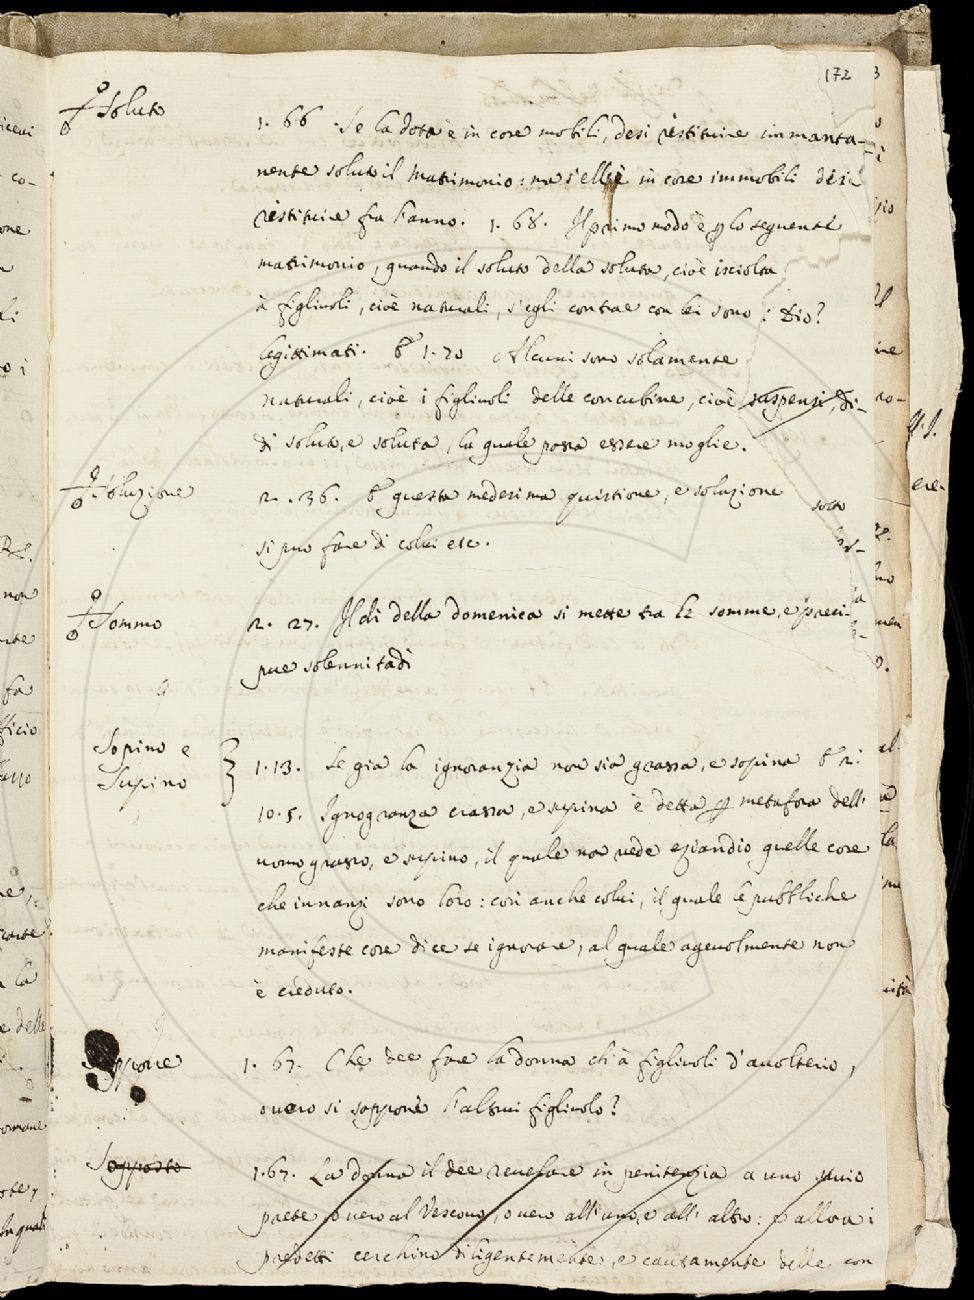 172
Soluto
1. 66. Se la dota è in cose mobili, desi restituire immanta-
nente soluto il matrimonio: ma s'ell'è in cose immobili desi
restituire fra l'anno. 1. 68. Il primo modo è p lo seguente
matrimonio, quando il soluto della soluta, cioè isciolta
à figliuoli, cioè naturali, s'egli contrae con lei sono
legittimati. E 1. 70 Alcuni sono solamente
naturali, cioè i figliuoli delle concubine, cioè di-
di soluto, e soluta, la quale possa essere moglie.
Soluzione
2. 36. E questa medesima quistione, e soluzione
si puo fare di colui etc.
Sommo
2. 27. Il di della domenica si mette tra le somme, e preci-
pue solennitadi
Sopino e
Supino
1. 13. Se gia la ignoranzia non sia grassa, e sopina E 2.
10. 5. Ignogranza crassa, e supina è detta p metafora dell'
uomo grasso, e supino, il quale non vede eziandio quelle cose
che innanzi sono loro: così anche colui, il quale le pubbliche
manifeste cose dice se ignorare, al quale agevolmente non
è creduto.
Soppone
1. 67. Che dee fare la donna ch'à figliuoli d'avolterio,
overo si soppone l'altrui figliuolo?
Sopposto
1. 67. La donna il dee revelare in penitenzia a uno savio
paete overo al Vescovo, overo all'uno, e all'altro: e allora i
predetti cerchino diligentemente, e cautamente delle con